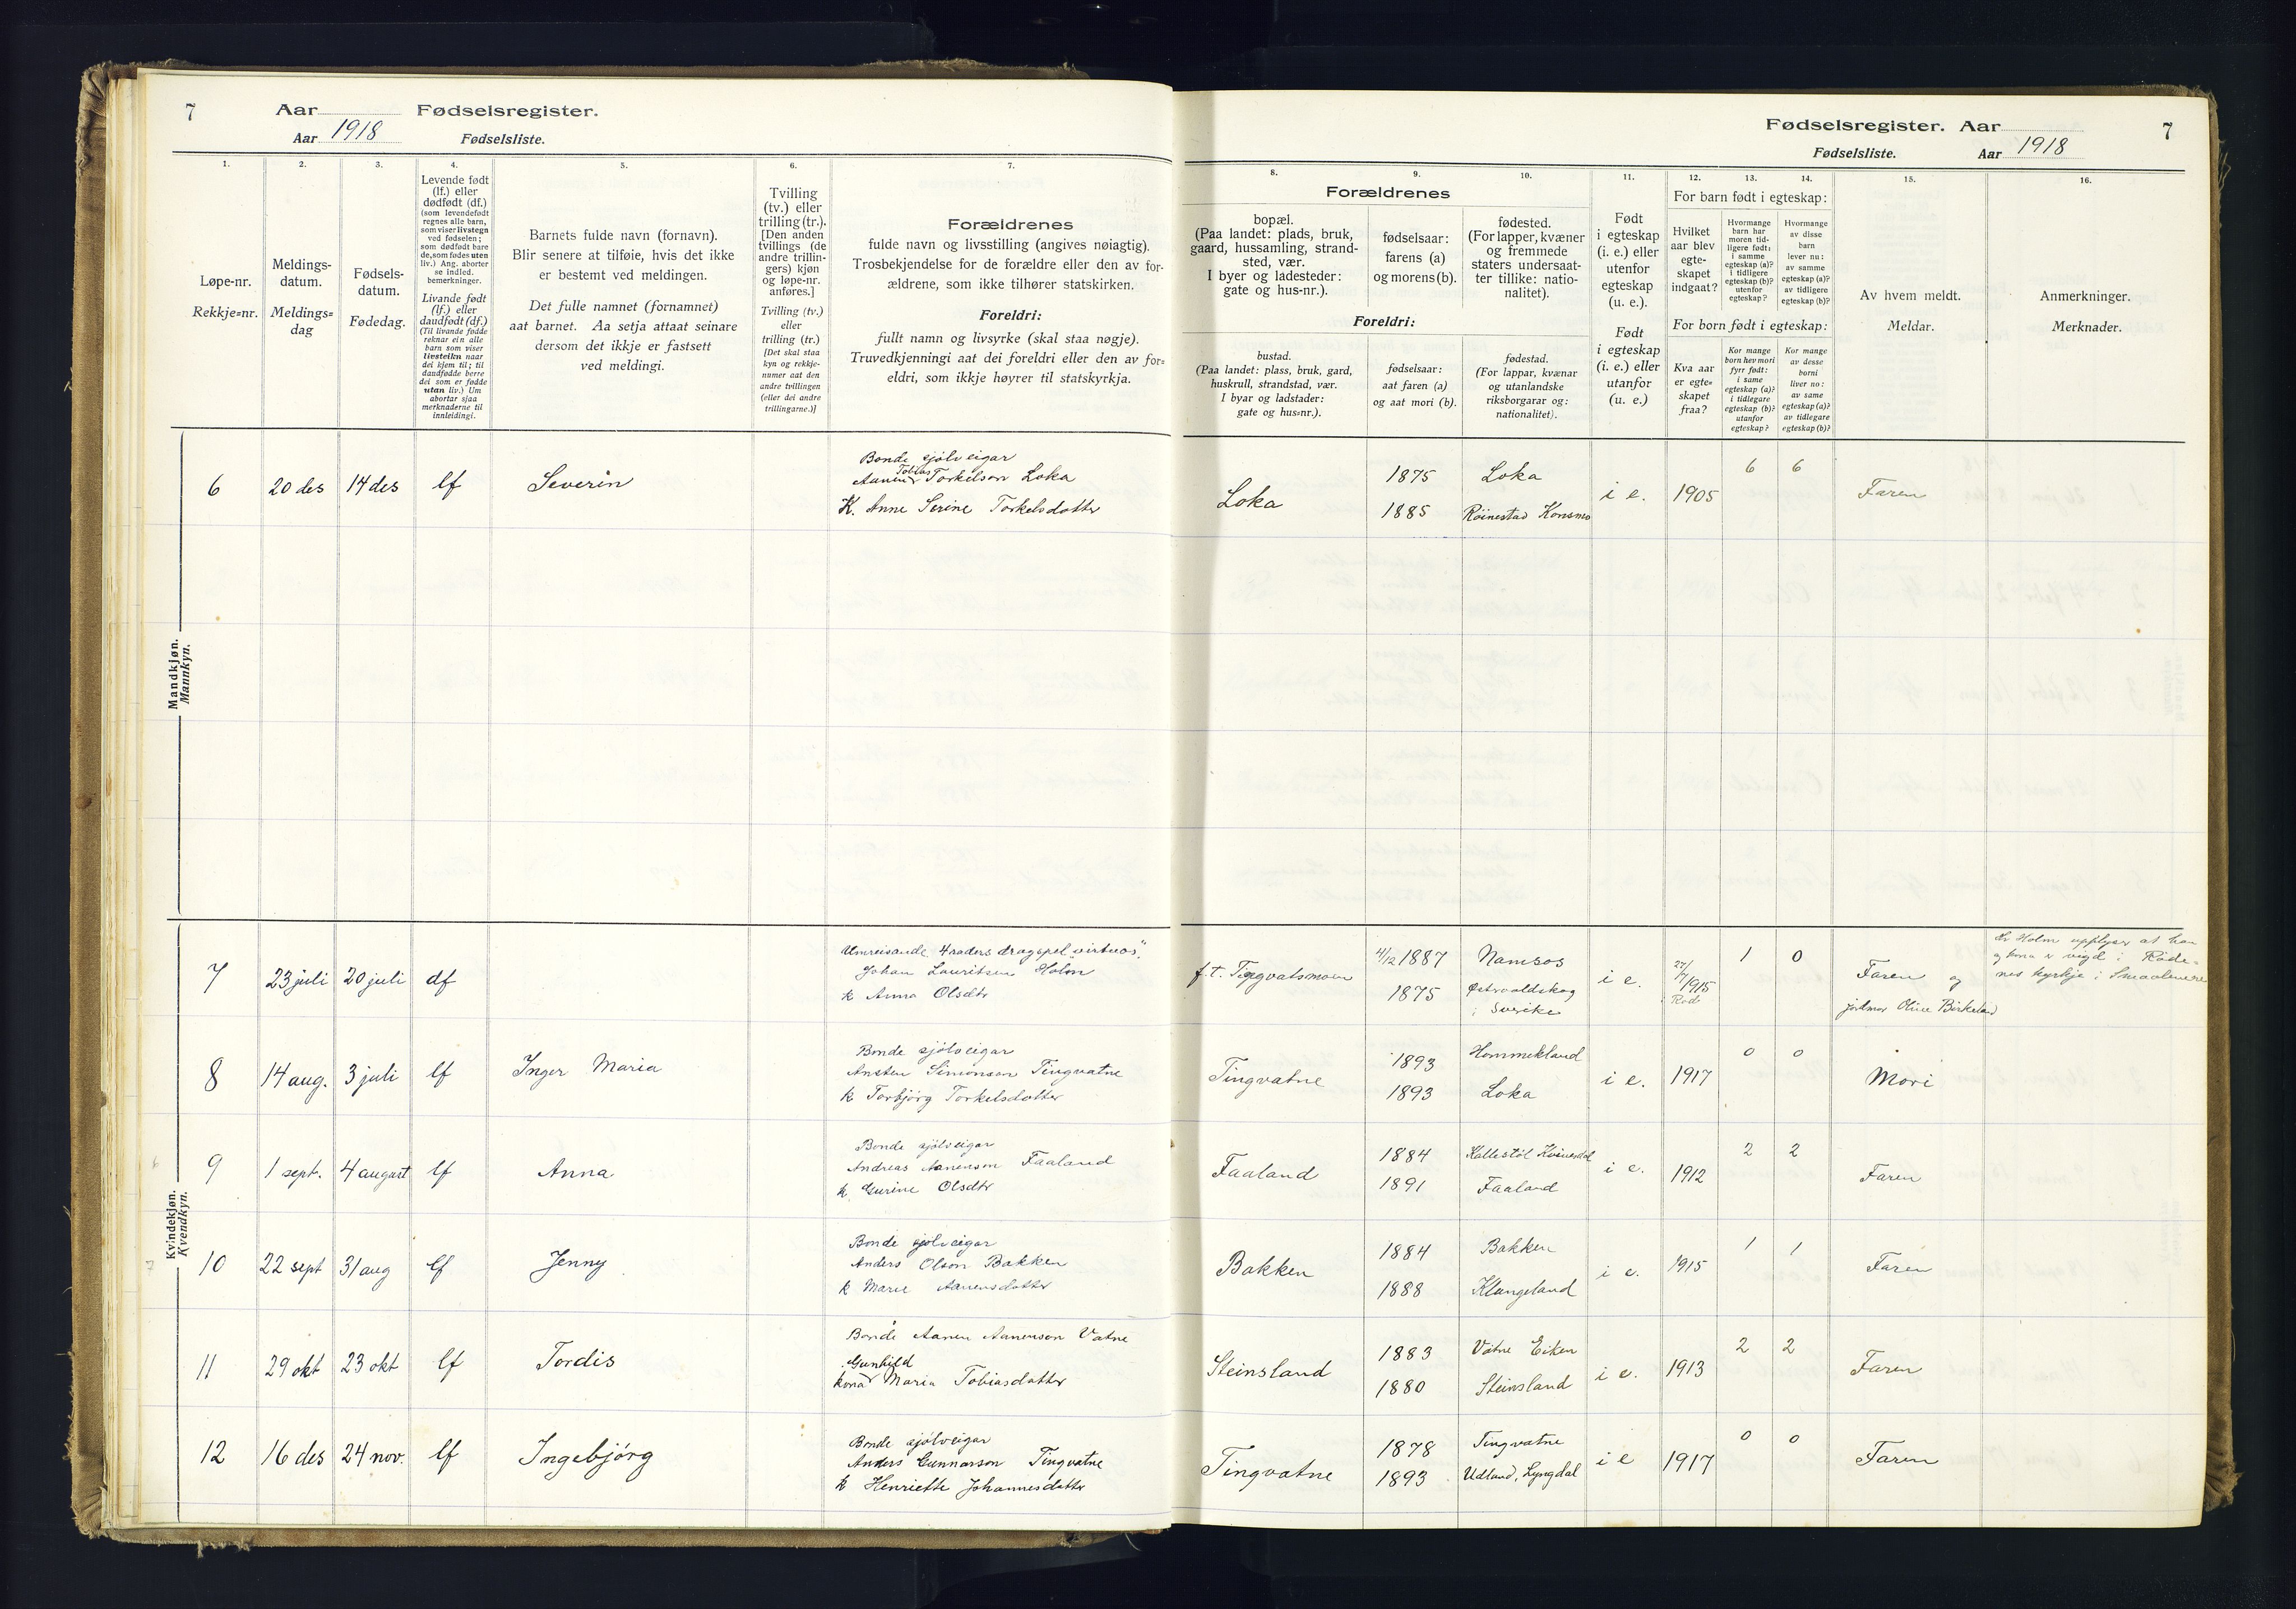 7
Aar Fødselsregister.
Aar 1918 Fødselsliste.
Fødselsregister. Aar
7
Fødselsliste. Aar 1918
1.
2.
3.
4.
5.
6.
7.
8.
9.
10.
11.
12.
13.
14.
15.
16.
Løpe-nr.
Rekkje=nr.
Meldings-
datum.
Meldings=
dag
Fødsels-
datum.
Fødedag.
Levende født
(lf.) eller
dødfødt (df.)
(som levendefødt
regnes alle barn,
som viser livstegn
ved fødselen;
som dødfødt bare
de, som fødes uten
liv.) Ang. aborter
se indled.
bemerkninger.
Livande født
(lf.) eller
daudfødt (df.)
(Til livande fødde
reknar ein alle
barn som viser
livsteikn naar
dei kjem til; til
daudfødde berre
dei som er fødde
utan liv.) Um
abortar sjaa
merknaderne til
innleidingi.
Barnets fulde navn (fornavn).
Blir senere at tilføie, hvis det ikke
er bestemt ved meldingen.
Det fulle namnet (fornamnet)
aat barnet. Aa setja attaat seinare
dersom det ikkje er fastsett
ved meldingi.
Tvilling
(tv.) eller
trilling (tr.).
[Den anden
tvillings (de
andre trillin-
gers) kjøn
og løpe-nr.
anføres.]
Tvilling (tv.)
eller
trilling (tr.)
[Det skal staa
kyn og rekkje-
numer aat den
andre tvillingen
(eller dei andre
trillingarne.)]
Forældrenes
fulde navn og livsstilling (angives nøiagtig).
Trosbekjendelse for de forældre eller den av for-
ældrene, som ikke tilhører statskirken.
Foreldri:
fullt namn og livsyrke (skal staa nøgje).
Truvedkjenningi aat dei foreldri eller den av for=
eldri, som ikkje høyrer til statskyrkja.
Forældrenes
bopæl.
(Paa landet: plads, bruk,
gaard, hussamling, strand-
sted, vær.
I byer og ladesteder:
gate og hus-nr.).
fødselsaar:
farens (a)
og morens (b).
fødested.
(For lapper, kvæner
og fremmede
staters undersaat-
ter tillike: natio-
nalitet).
Foreldri:
bustad.
(Paa landet: plass, bruk, gard,
huskrull, strandstad, vær.
I byar og ladstader:
gate og hus=nr.).
fødselsaar:
aat faren (a)
og aat mori (b).
fødestad.
(For lappar, kvænar
og utanlandske
riksborgarar og:
nationalitet).
Født
i egteskap
(i. e.) eller
utenfor
egteskap
(u. e.).
Født
i egteskap
(i. e.) eller
utanfor
egteskap
(u. e.)
For barn født i egteskap:
Hvilket
aar blev
egte-
skapet
indgaat?
Hvormange
barn har
moren tid-
ligere født:
i samme
egteskap (a)?
i tidligere
egteskap (b)?
utenfor
egteskap?
Hvormange
av disse
barn
lever nu:
av samme
egteskap (a)?
av tidligere
egteskap (b)?
For born født i egteskap:
Kva aar
er egte=
skapet
fraa?
Kor mange
born hev mori
fyrr født:
i same
egteskap (a)?
i tidlegare
egteskap (b)?
utanfor
egteskap?
Kor mange
av desse
borni
liver no:
av same
egteskap (a)?
av tidlegare
egteskap (b)?
Av hvem meldt.
Meldar.
Anmerkninger.
Merknader.
Mandkjøn.
Mannkyn.
6 20 des 14 des lf Severin
Bonde sjölveigar
Aanen Tobias Torkelson Loka
K. Anne Serine Torkelsdotter
Loka
1875 Loka
1885 Röinestad Konsmo
i e. 1905 6 6 Faren
Kvindekjøn.
Kvendkyn.
7 23 juli 20 juli df
Umreisande 4 raders dragspel „virtuos".
Johan Lauritsen Holm
k Anna Olsdtr
f. t. Tingvatsmoen
4/12 1887 Namsos
1875 Østvoldskog
i Sverike
i e. 27/7 1915 1 0
Faren og
jordmor Oline Birkeland
Hr Holm upplyser at han
og kona er vigd i Røde-
nes kyrkje i Smaalenene
8 14 aug. 3 juli lf Inger Maria
Bonde sjölveigar
Ansten Simonson Tingvatne
k Torbjörg Torkelsdotter
Tingvatne
1893 Hommekland
1893 Loka
i e. 1917 0 0 Mori
9 1 sept. 4 august lf Anna
Bonde sjölveigar
Andreas Aanenson Faaland
k Gurine Olsdtr
Faaland
1884 Kallestöl Kvinesdal
1891 Faaland
i e. 1912 2 2 Faren
10 22 sept 31 aug lf Jenny
Bonde sjölveigar
Anders Olson Bakken
k Marie Aanensdotter
Bakken
1884 Bakken
1888 Klungeland
i e. 1915 1 1 Faren
11 29 okt 23 okt lf Tordis
Bonde Aanen Aanenson Vatne
kona Gunhild Maria Tobiasdotter
Steinsland
1883 Vatne Eiken
1880 Steinsland
i e. 1913 2 2 Faren
12 16 des 24 nov. lf Ingebjörg
Bonde sjölveigar
Anders Gunnarson Tingvatne
k Henriette Johannesdotter
Tingvatne
1878 Tingvatne
1893 Udland, Lyngdal
i e 1917 0 0 Faren